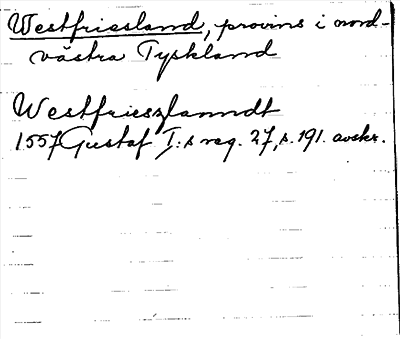 Westfriesland, provins i nord-
västra Tyskland
Westfrieszlanndt
1557 Gustaf I:s reg. 27, s. 191. avskr.